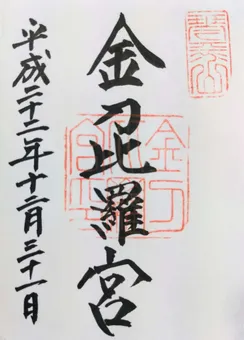 金刀比羅宮
平成二十二年十二月三十一日